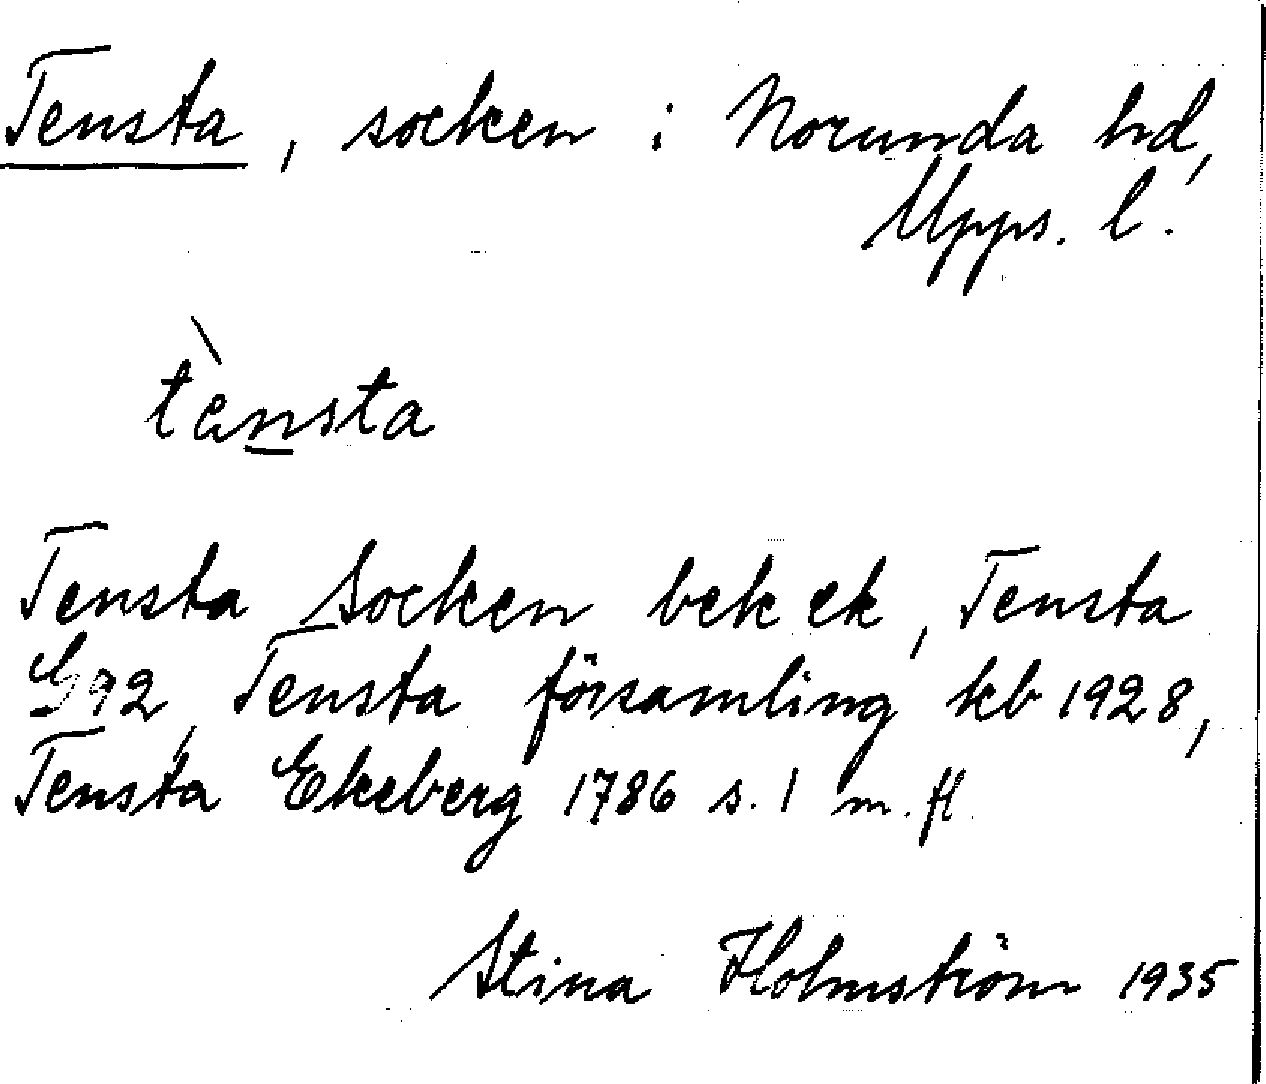 Tensta, socken i Norunda hd,
Upps. l.
tènsta
Tensta Socken bek ek, Tensta
G92, Tensta församling kb 1928,
Tensta Ekeberg 1786 s. 1 m. fl.
Stina Holmström 1935